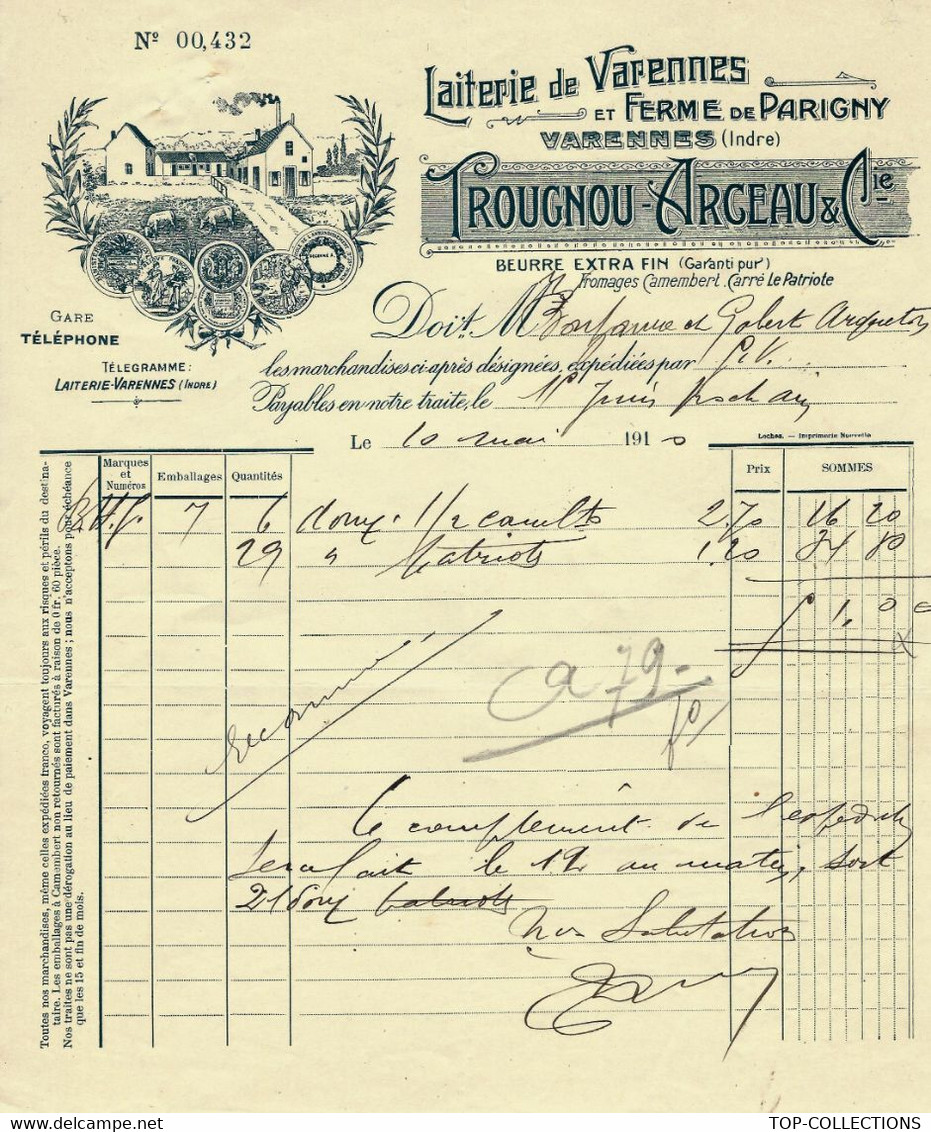 Nº 00,432
Laiterie de Varennes
ET FERME DE PARIGNY
VARENNES (Indre)
TROUGNOU-ARGEAU & Cie
BEURRE EXTRA FIN (Garanti pur)
Fromages Camembert. Carré Le Patriote
GARE
TÉLÉPHONE
TÉLEGRAMME:
LAITERIE-VARENNES (INDRE)
Doit M et Gobert
les marchandises ci-après désignées, expédiées par G.V.
Payables en notre traite, le 15 Juin prochain
Le 10 mai 1910
Loches. — Imprimerie Nouvelle
Marques et Numéros Emballages Quantités Prix SOMMES
7 6 douz. 1/2 2.70 16 20
29 " Patriots 1.20 34 80
51. 00
a 79-
50
Le complément de
sera fait le 12 au matin, soit
21 douz patriots
Nos Salutations
Toutes nos marchandises, même celles expédiées franco, voyagent toujours aux risques et périls du destina-
taire. Les emballages à Camembert non retournés sont facturés à raison de 0 fr. 60 pièce.
Nos traites ne sont pas une dérogation au lieu de paiement dans Varennes ; nous n'acceptons pour échéance
que les 15 et fin de mois.
TOP-COLLECTIONS